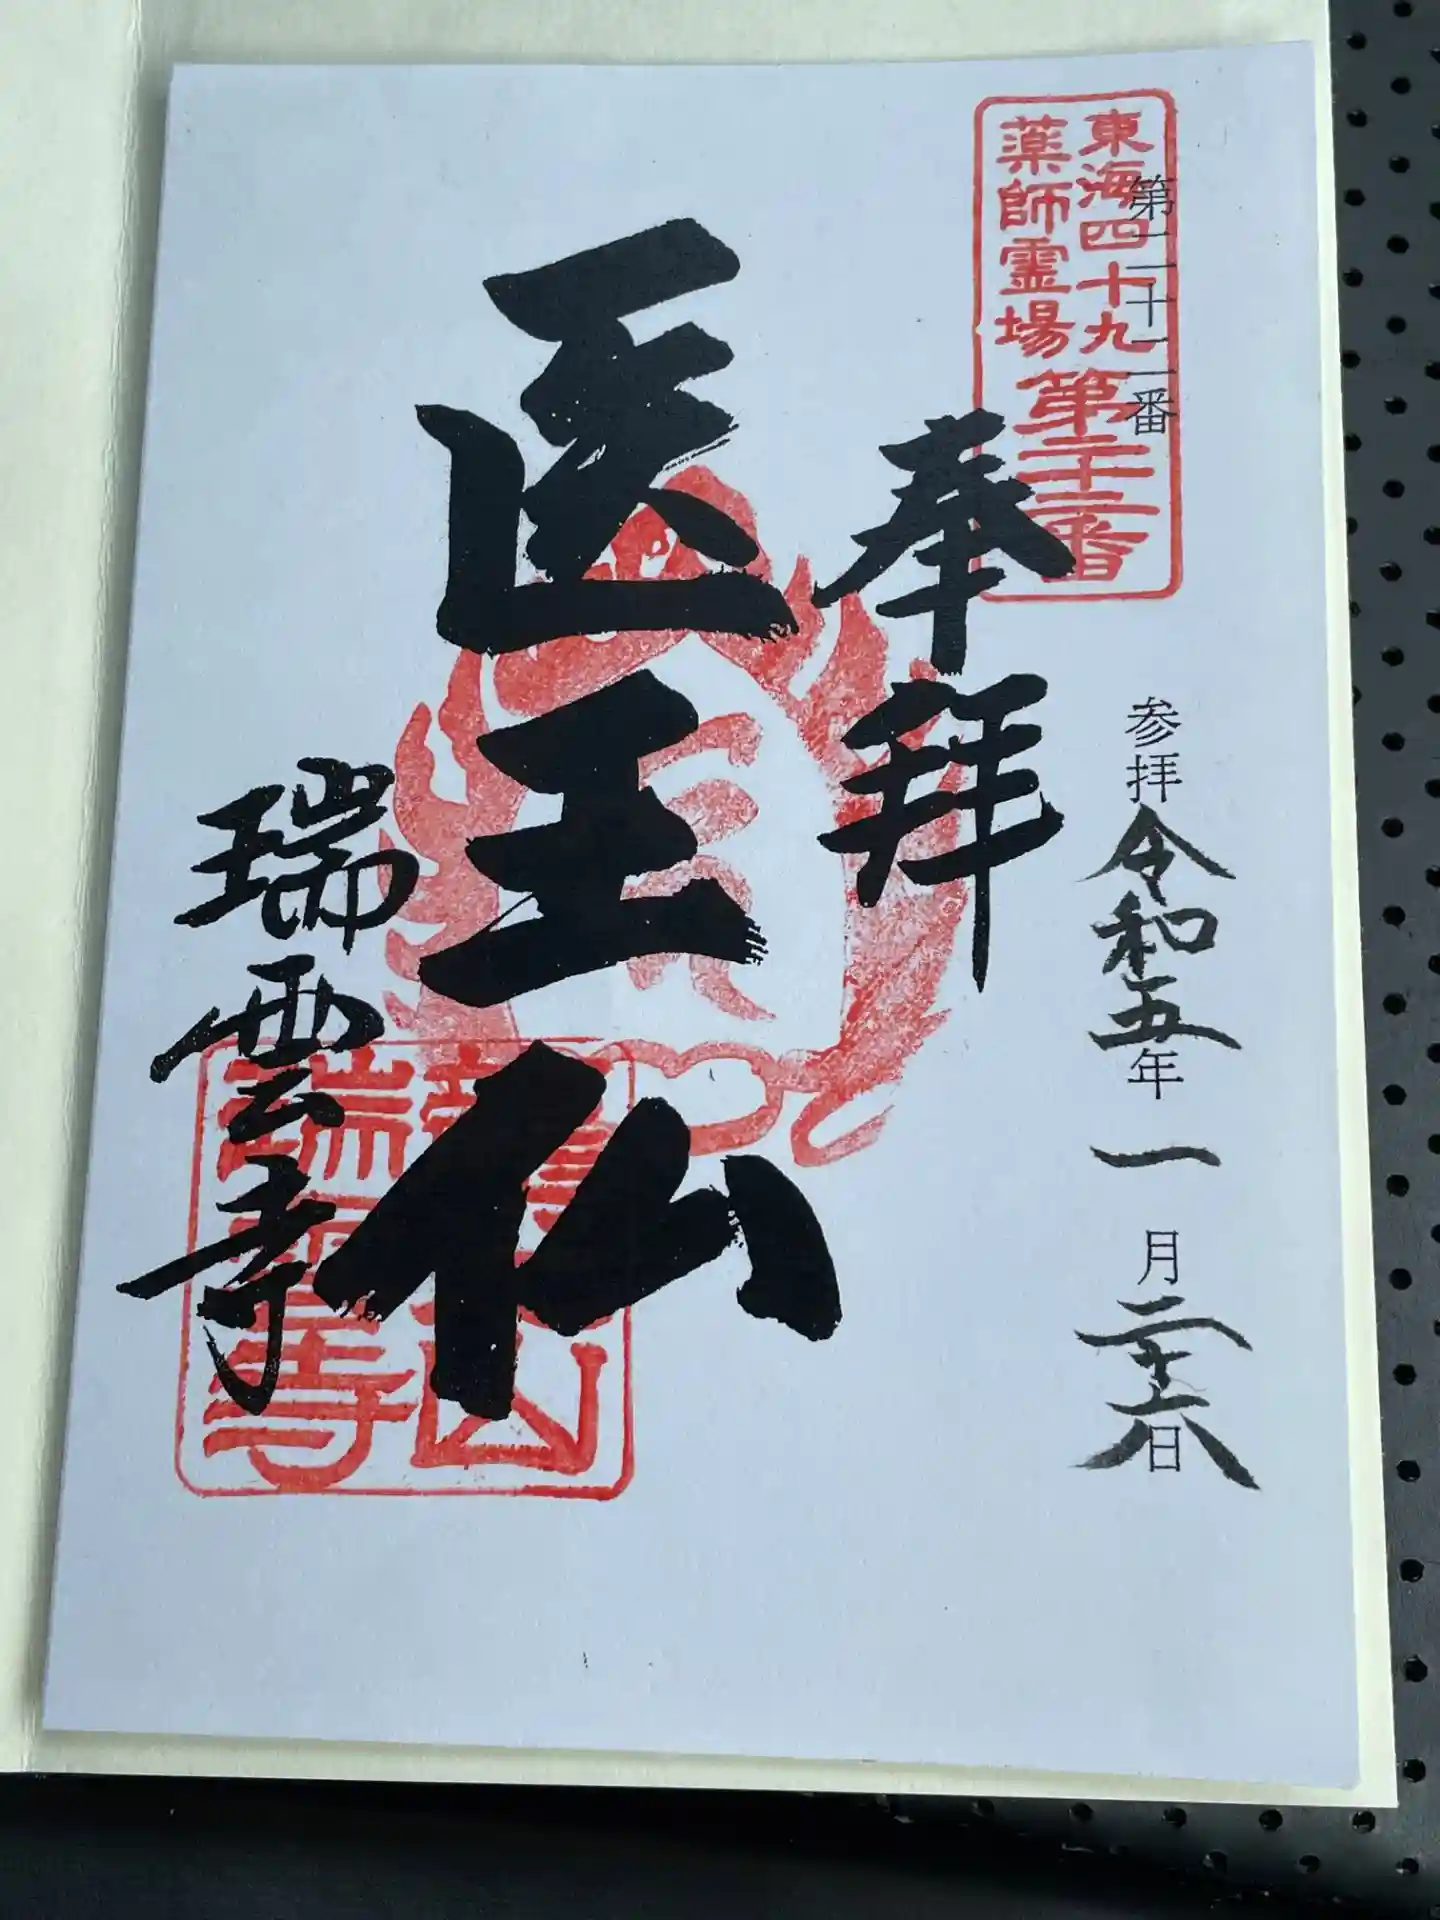 第二十二番
参拝 令和五年 一月二十六日
東海四十九
薬師霊場
第二十二番
奉拝
医王仏
瑞雲寺
山
瑞雲寺